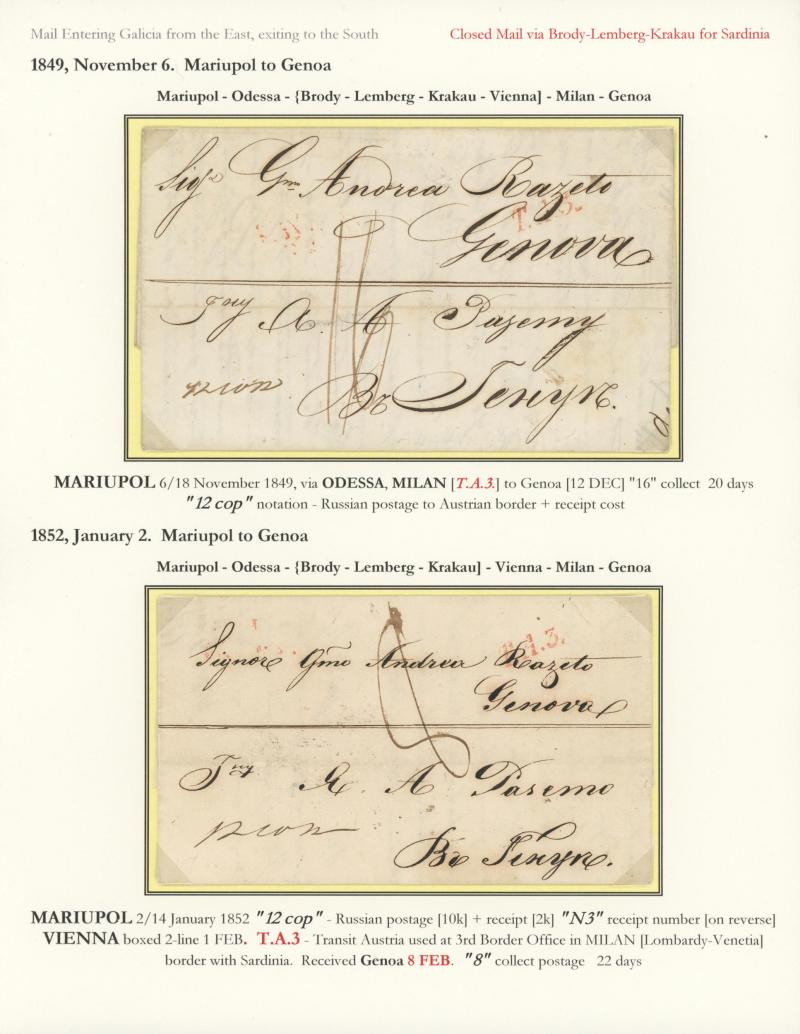 Mail Entering Galicia from the East, exiting to the South
Closed Mail via Brody-Lemberg-Krakau for Sardinia
1849, November 6. Mariupol to Genoa
Mariupol - Odessa - {Brody - Lemberg - Krakau - Vienna] - Milan - Genoa
Sigr Gm Andrea Razeto
T.A.3.
Genova
16
Гну А. А
Въ Генуѣ.
MARIUPOL 6/18 November 1849, via ODESSA, MILAN [T.A.3.] to Genoa [12 DEC] "16" collect 20 days
"12 cop" notation - Russian postage to Austrian border + receipt cost
1852, January 2. Mariupol to Genoa
Mariupol - Odessa - {Brody - Lemberg - Krakau] - Vienna - Milan - Genoa
T.A.3.
Signore Gmo Andrea Razeto
Genova
8
Гну А. Разето
Въ Генуѣ.
MARIUPOL 2/14 January 1852 "12 cop" - Russian postage [10k] + receipt [2k] "N3" receipt number [on reverse]
VIENNA boxed 2-line 1 FEB. T.A.3 - Transit Austria used at 3rd Border Office in MILAN [Lombardy-Venetia]
border with Sardinia. Received Genoa 8 FEB. "8" collect postage 22 days